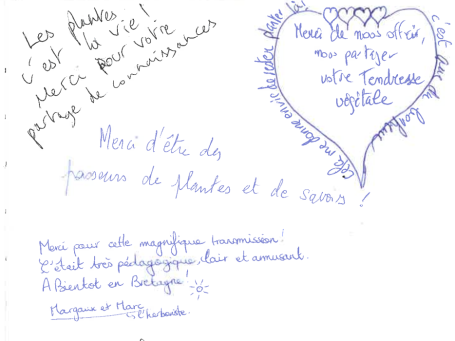 Les plantes
c'est la vie !
Merci pour votre
partage de connaissances
Merci de nous offrir,
nous partager
votre Tendresse
végétale
cela me donne envie de rester planter là
c'est que du bonheur
Merci d'être des
passeurs de plantes et de savoirs !
Merci pour cette magnifique transmission !
C'était très pédagogique, clair et amusant.
A Bientot en Bretagne !
Margaux et Marc
l'herboriste.